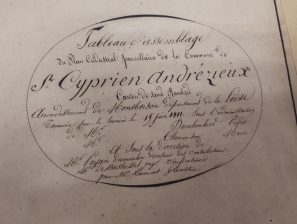 Tableau d'assemblage
du Plan Cadastral parcellaire de la Commune de
St Cyprien Andrézieux
Canton de Saint Rambert
Arrondissement de Montbrison département de la Loire
Terminé sur le terrain le 15 juin 1811 sous l'administration
de Mr. Préfet
Mr. Maire
Et sous la direction de
Mr. directeur des contributions
Mr.
par Mr. Géomètre